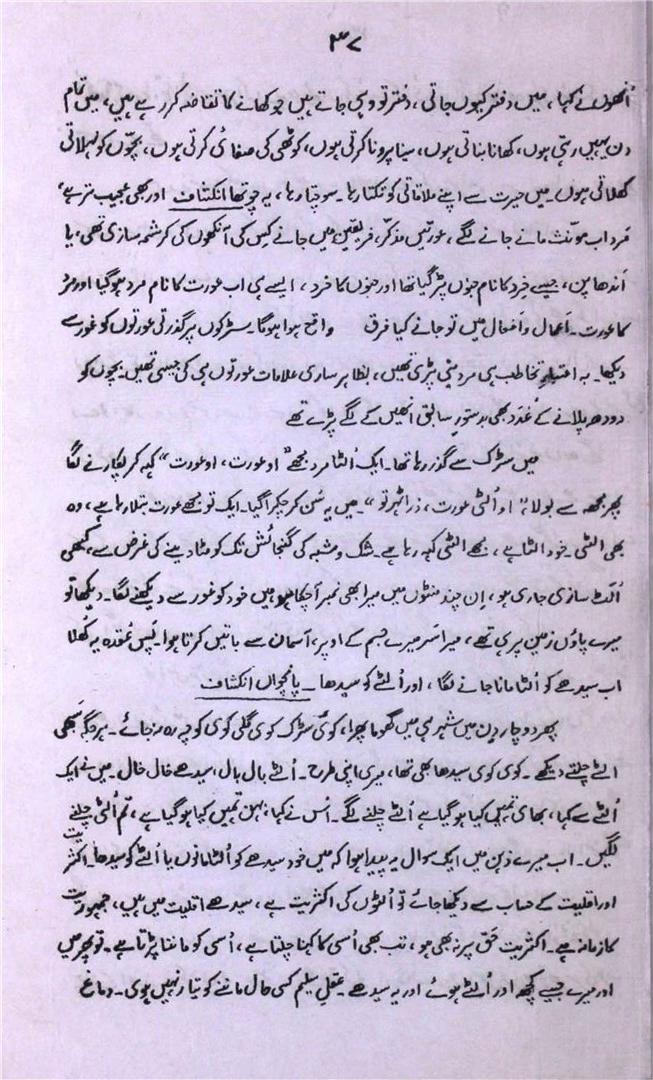 ۳۷
اُنھوں نے کہا، میں دفتر کیوں جاتی، دفتر تو وہی جاتے ہیں جو کھانے کا تقاضہ کر رہے ہیں، میں تمام
دن یہیں رہتی ہوں، کھانا بناتی ہوں، سینا پرونا کرتی ہوں، کوٹھی کی صفائی کرتی ہوں، بچّوں کو نہلاتی
کھلاتی ہوں۔ میں حیرت سے اپنے ملاقاتی کو تکتا رہا۔ سوچتا رہا، یہ چوتھا انکشاف اور بھی عجیب تر ہے،
مرد اب مونّث مانے جانے لگے، عورتیں مذکّر، فریقین میں جانے کس کی آنکھوں کی کرشمہ سازی تھی، یا
اندھا پن، جیسے خِرد کا نام جنوں پڑ گیا تھا اور جنوں کا خرد، ایسے ہی اب عورت کا نام مرد ہو گیا اور مرد
کا عورت۔ اَعمال و اَفعال میں تو جانے کیا فرق واقع ہوا ہوگا۔ سڑکوں پر گذرتی عورتوں کو غور سے
دیکھا۔ بہ اعتبارِ تخاطب ہی مرد بنی پڑی تھیں، بظاہر ساری علامات عورتوں ہی کی جیسی تھیں۔ بچوں کو
دودھ پلانے کے غُدَد بھی بدستورِ سابق انھیں کے لگے پڑے تھے
میں سڑک سے گذر رہا تھا۔ ایک اُلٹا مرد مجھے "او عورت، او عورت" کہہ کر پکارنے لگا
پھر مجھ سے بولا "او اُلٹی عورت، ذرا ٹہر تو"۔ میں یہ سُن کر چکرا گیا۔ ایک تو مجھے عورت بتلا رہا ہے، وہ
بھی الٹی۔ خود الٹا ہے، مجھے الٹی کہہ رہا ہے۔ شک و شبہ کی گنجائش تک کو مٹا دینے کی غرض سے، کہیں
اُلٹ سازی جاری ہو، اِن چند منٹوں میں میرا بھی نمبر آ چکا ہو میں خود کو غور سے دیکھنے لگا۔ دیکھا تو
میرے پاؤں زمین پر ہی تھے، میرا سَر میرے جسم کے اوپر، آسمان سے باتیں کرتا ہوا۔ پَس عُقدہ یہ کھُلا
اب سیدھے کو اُلٹا مانا جانے لگا، اور اُلٹے کو سیدھا۔ پانچواں انکشاف
پھر دو چار دِن میں شہر ہی میں گھوما پھرا، کوئی سڑک کوئی گلی کوئی کوچہ رہ نہ جائے۔ ہر جگہ سَبھی
الٹے چلتے دیکھے۔ کوئی کوئی سیدھا بھی تھا، میری اپنی طرح۔ اُلٹے بال بال، سیدھے خال خال۔ میں نے ایک
اُلٹے سے کہا، بھائی تمہیں کیا ہو گیا ہے اُلٹے چلنے لگے۔ اُس نے کہا، بہن تمہیں کیا ہو گیا ہے، تم اُلٹی چلنے
لگیں۔ اب میرے ذہن میں ایک سوال یہ پیدا ہوا کہ میں خود سیدھے کو اُلٹا مانوں یا اُلٹے کو سیدھا۔ اکثریت
اور اقلیت کے حساب سے دیکھا جائے تو اُلٹوں کی اکثریت ہے، سیدھے اقلیت میں ہیں، جمہوریت
کا زمانہ ہے۔ اکثریت حَق پر نہ بھی ہو، تب بھی اُسی کا کہنا چلتا ہے، اُسی کو ماننا پڑتا ہے۔ تو پھر میں
اور میرے جیسے کچھ اور اُلٹے ہوئے اور یہ سیدھے۔ عقلِ سلیم کسی حال ماننے کو تیار نہیں ہوئی۔ دماغ